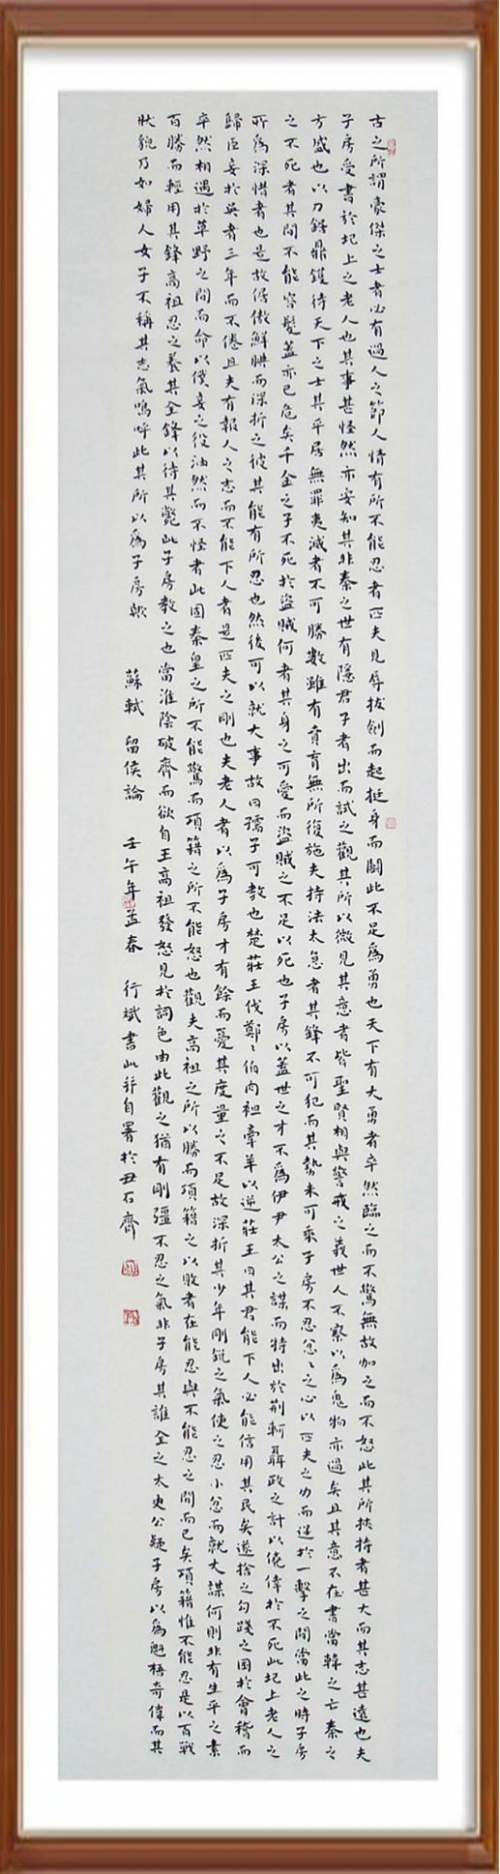 古之所謂豪傑之士者必有過人之節人情有所不能忍者匹夫見辱拔劍而起挺身而鬪此不足為勇也天下有大勇者卒然臨之而不驚無故加之而不怒此其所挾持者甚大而其志甚遠也夫
子房受書於圯上之老人也其事甚怪然亦安知其非秦之世有隱君子者出而試之觀其所以微見其意者皆聖賢相與警戒之義世人不察以為鬼物亦過矣且其意不在書當韓之亡秦之
方盛也以刀鋸鼎鑊待天下之士其平居無罪夷滅者不可勝數雖有賁育無所復施夫持法太急者其鋒不可犯而其勢未可乘子房不忍忿〻之心以匹夫之力而逞於一擊之間當此之時子房
之不死者其間不能容髮蓋亦已危矣千金之子不死於盜賊何者其身之可愛而盜賊之不足以死也子房以蓋世之才不為伊尹太公之謀而特出於荊軻聶政之計以僥倖於不死此圯上老人之
所為深惜者也是故倨傲鮮腆而深折之彼其能有所忍也然後可以就大事故曰孺子可教也楚莊王伐鄭〻伯肉袒牽羊以逆莊王曰其君能下人必能信用其民矣遂捨之勾踐之困於會稽而
歸臣妾於吳者三年而不倦且夫有報人之志而不能下人者是匹夫之剛也夫老人者以為子房才有餘而憂其度量之不足故深折其少年剛銳之氣使之忍小忿而就大謀何則非有生平之素
卒然相遇於草野之間而命以僕妾之役油然而不怪者此固秦皇之所不能驚而項籍之所不能怒也觀夫高祖之所以勝而項籍之以敗者在能忍與不能忍之間而已矣項籍惟不能忍是以百戰
百勝而輕用其鋒高祖忍之養其全鋒以待其斃此子房教之也當淮陰破齊而欲自王高祖發怒見於詞色由此觀之猶有剛彊不忍之氣非子房其誰全之太史公疑子房以為魁梧奇偉而其
狀貌乃如婦人女子不稱其志氣嗚呼此其所以為子房歟 蘇軾 留侯論 壬午年孟春 行斌書此並自署於丑石齋